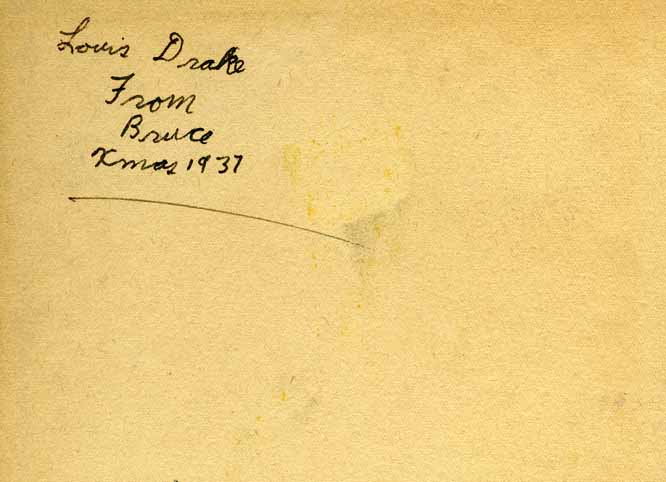 Louis Drake
From
Bruce
Xmas 1937